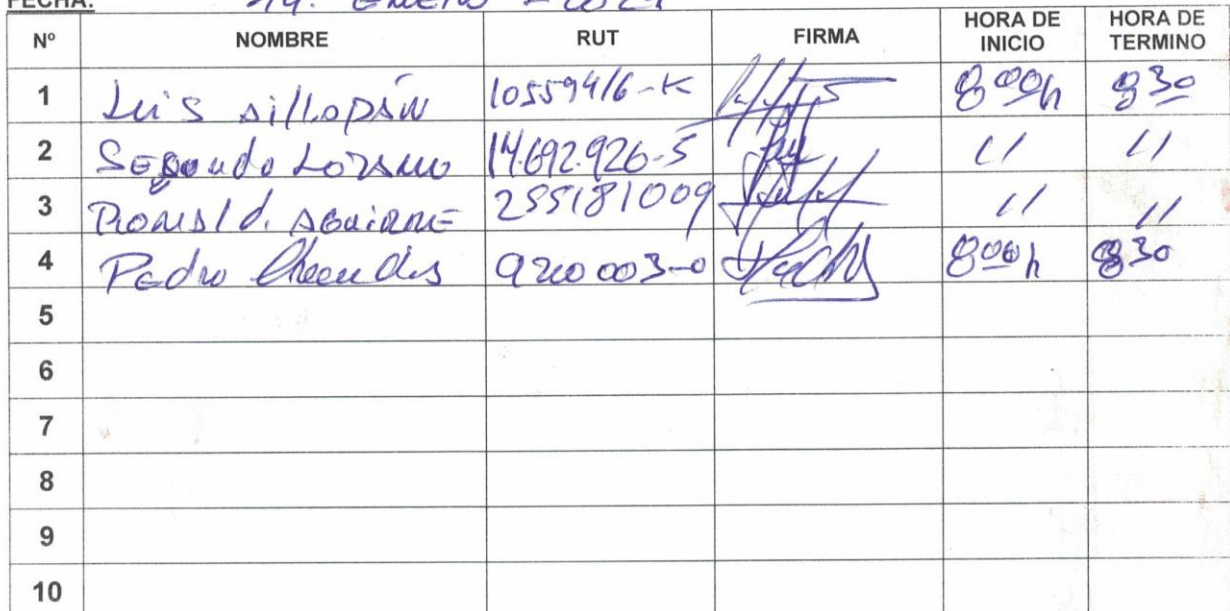 FECHA: ENERO
Nº NOMBRE RUT FIRMA HORA DE INICIO HORA DE TERMINO
1 Luis Aillapán 10559416-K 8 00h 8 30
2 Segundo Lozano 14.692.926-5 // //
3 Ronald. Aguirre 255181009 // //
4 Pedro 9200003-0 8 00h 8 30
5
6
7
8
9
10